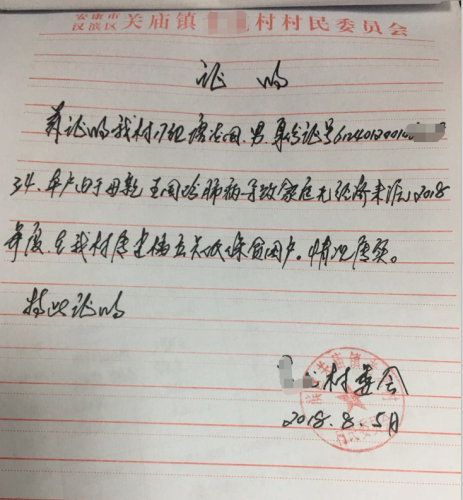 安康市
汉滨区 关庙镇 村村民委员会
证 明
兹证明我村 组唐 男.身份证号612401200
34.本户由于母亲王 肺病导致家庭无经济来源,2018
年度.在我村属建档立卡低保贫困户。情况属实。
特此证明
村委会
2018.8.5日
关庙镇